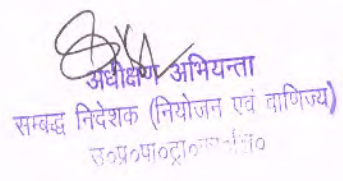 अधीक्षण अभियन्ता
सम्बद्ध निदेशक (नियोजन एवं वाणिज्य)
उ०प्र०पा०ट्रा०